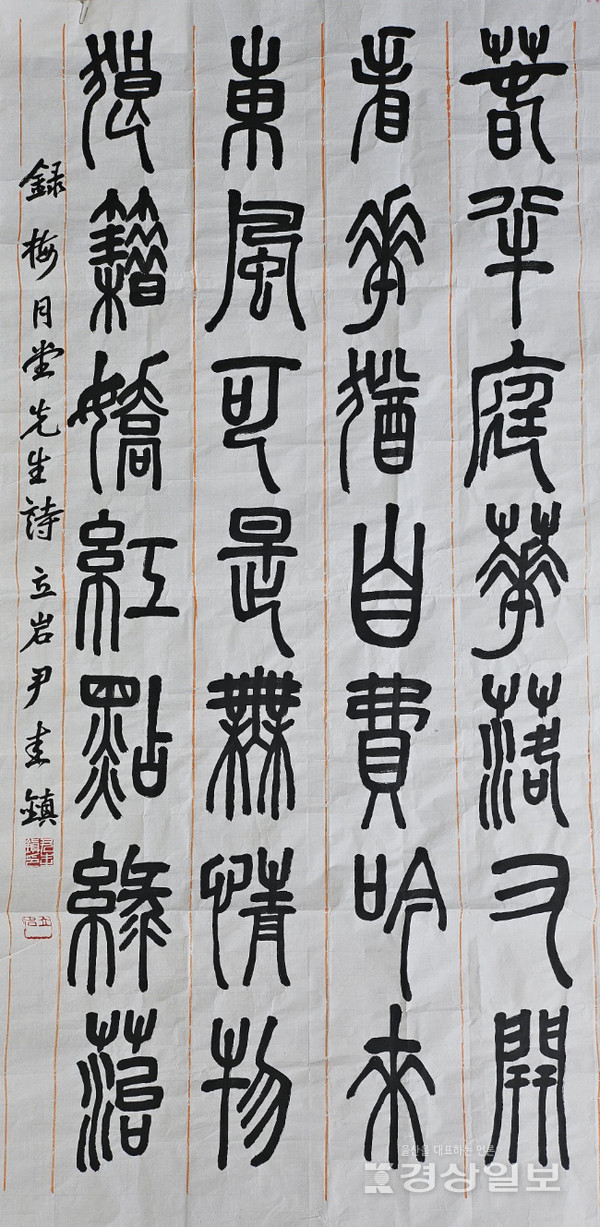 春半庭華落又開
看華猶自費吟來
東風可是無情物
狼籍嬌紅點綠菭
録梅月堂先生詩 立岩 尹圭鎮
울산을 대표하는 언론
경상일보